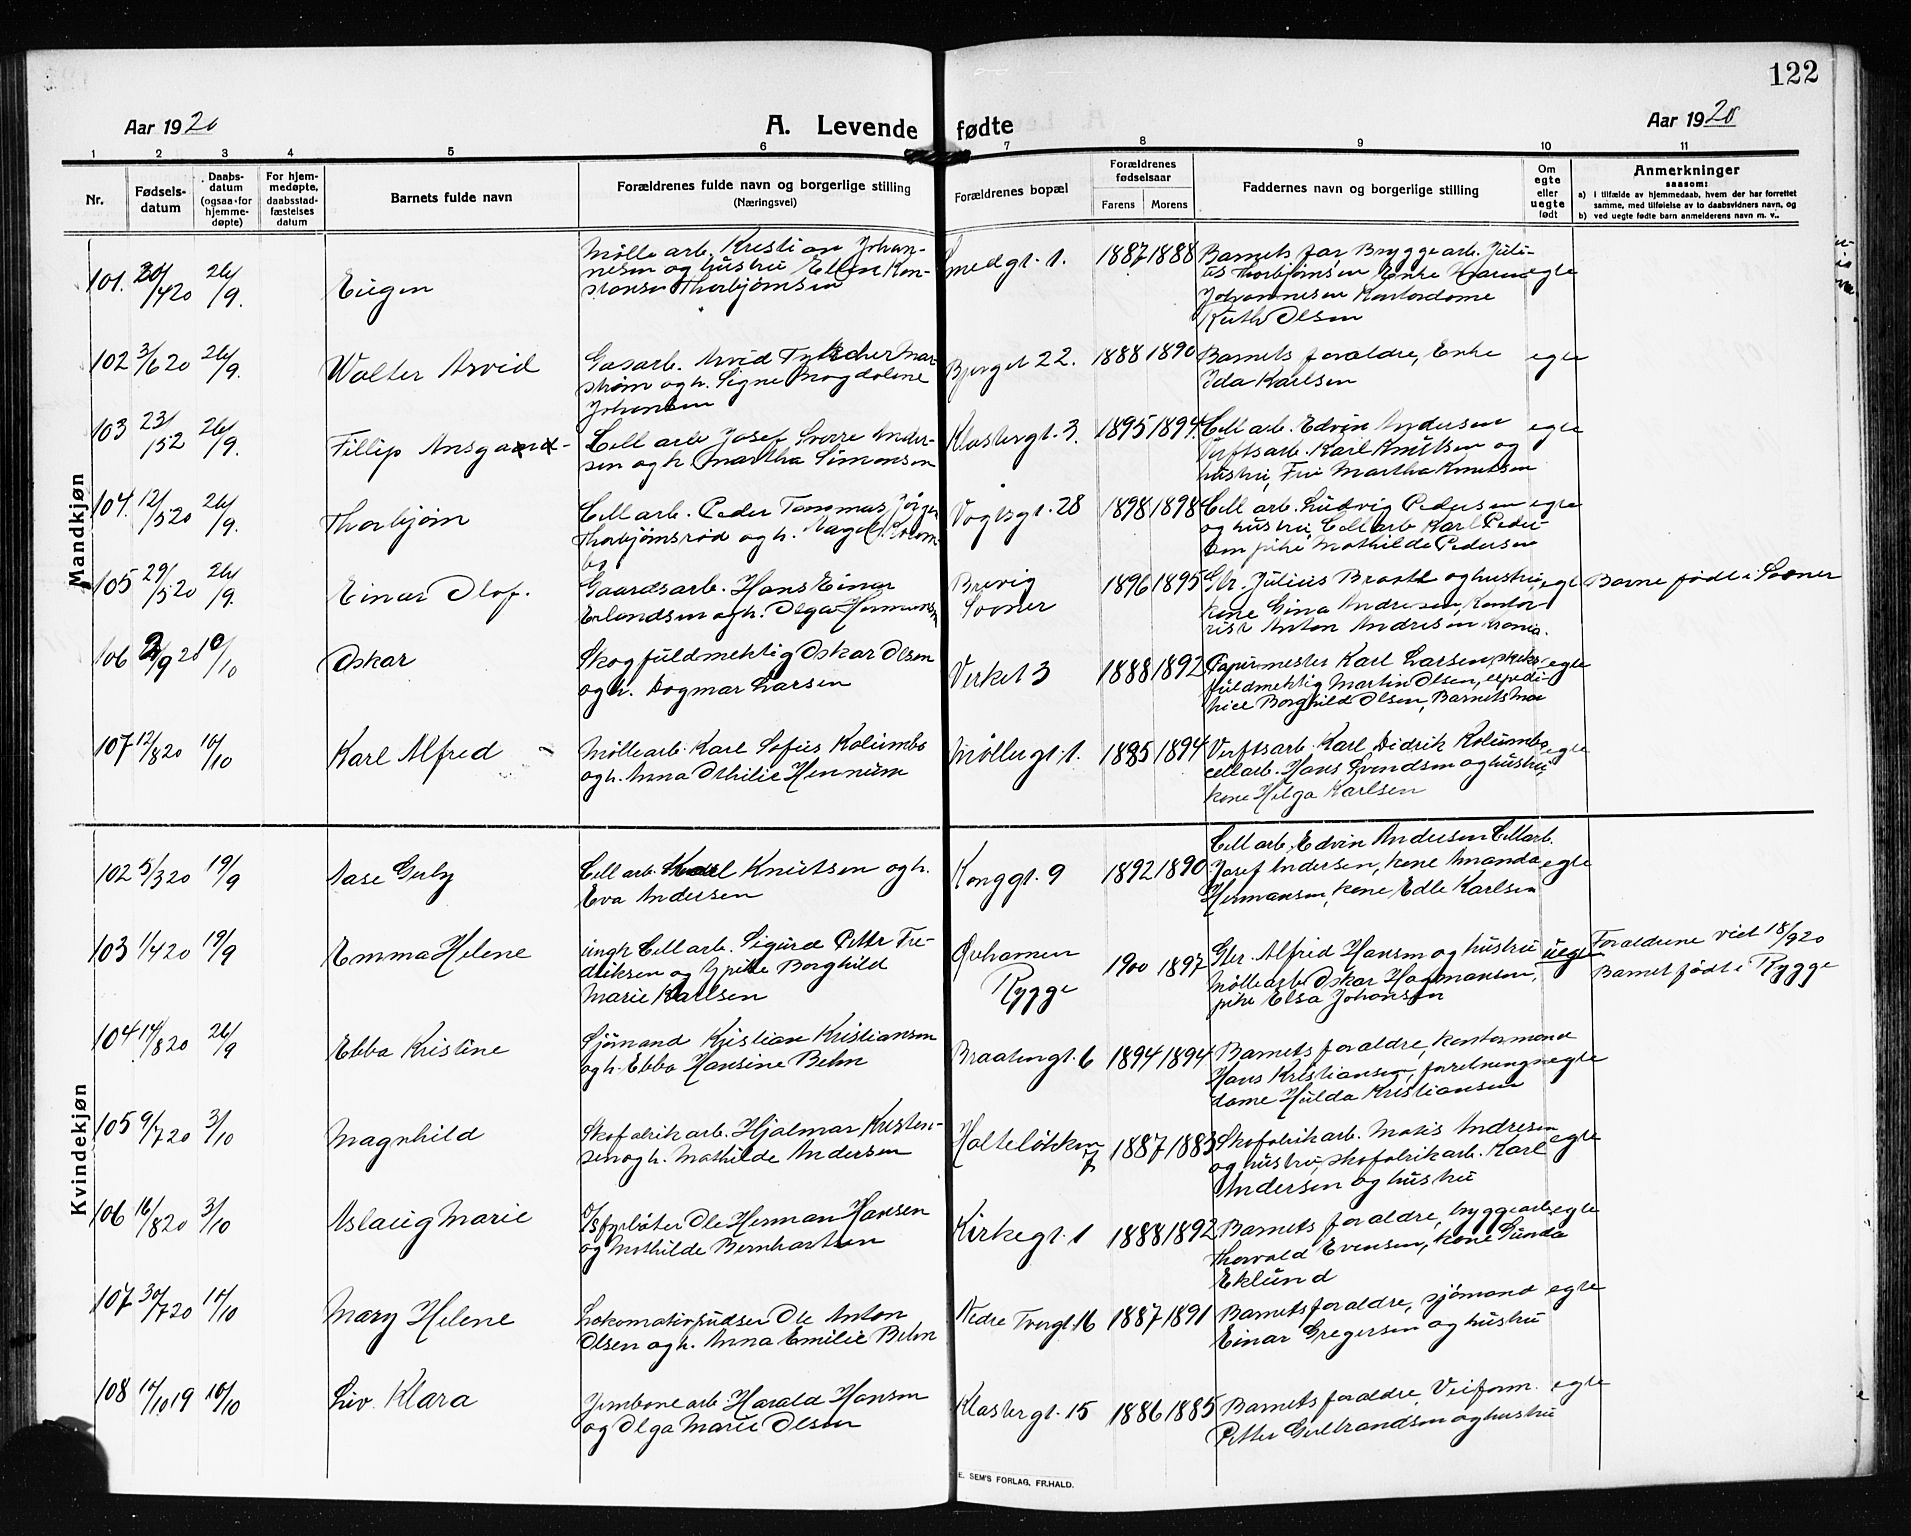 122
Aar 1920
A. Levende fødte
Aar 1920
1 2 3 4 5 6 7 8 9 10 11
Nr.
Fødsels-
datum
Daabs-
datum
(ogsaa for
hjemme-
døpte)
For hjem-
medøpte,
daabsstad-
fæstelses
datum
Barnets fulde navn
Forældrenes fulde navn og borgerlige stilling
(Næringsvei)
Forældrenes bopæl
Forældrenes
fødselsaar
Farens Morens
Faddernes navn og borgerlige stilling
Om
egte
eller
uegte
født
Anmerkninger
saasom:
a) i tilfælde av hjemmedaab, hvem der har forrettet
samme, med tilføielse av to daabsvidners navn, og
b) ved uegte fødte barn anmelderens navn m. v..
Mandkjøn
101. 20/4 20 26/9. Eugen
Møllearb. Kristian Johan-
nesen og hustru Ellen Kon-
stanse Thorbjørnsen
Smedgt. 1. 1887 1888
Barnets far, Bryggearb. Juli-
us Thorbjørnsen Enke Maren
Johannesen Kontordame
Ruth Olsen
egte
102 3/6 20 26/9. Walter Arvid
Gasarb. Arvid Mar-
strøm og h. Signe Magdalene
Johansen
Bjerget 22. 1888 1890
Barnets foraldre, Enke
Ida Karlsen
egte
103 23/5 2 26/9. Fillip Ansgar
Cell arb. Josef Sverre Ander-
sen og h. Martha Simonsen
Klostergt. 3. 1895 1894.
Cell arb. Edvin Andersen
Verftsarb. Karl Knutsen og
hustru, Fru Martha Knutsen
egte
104. 12/5 20 26/9. Thorbjørn
Cellarb. Peder Tommas Jørgen
Thorbjørnsrød og h. Magel. Kolum-
bo
Vogtsgt. 28 1898 1898
Cell arb. Ludvig Pedersen
og hustru, Cellarb Karl Peder-
sen pike Mathilde Pedersen
egte
105 29/5 20 26/9. Einar Olof.
Gaardsarb. Hans Einar
Erlandsen og h. Olga Hermansen
Brevig
Sooner
1896 1895
Gbr. Julius Braatl og hustru,
kone Gina Andresen, Kontor-
rist Anton Andresen
egt
Barne født i Sooner
106 2/9 20 10/10 Oskar
Skogfuldmektig Oskar Olsen
og h. Dagmar Larsen
Verket 3 1888 1892
Papirmester Karl Larsen,
fuldmektig Martin Olsen, expedi-
trice Borghild Olsen, Barnets mor
egte
107 12/8 20 10/10 Karl Alfred
Møllearb. Karl Sofus Kolumbo
og h. Anna Othilie Hennum
Møllergt. 1. 1895 1894
Verftsarb. Karl Didrik Kolumbo
cellarb. Hans Svendsen og hustru,
kone Helga Karlsen
egte
Kvindekjøn
102 5/3 20 19/9 Aase Guly
Cell arb. Karl Knutsen og h.
Eva Andersen
Konggt. 9 1892 1890
Cell arb. Edvin Andersen Cellarb.
Josef Andersen, kone Amanda
Hermansen, kone Edle Karlsen
egte
103 1/4 20 19/9 Emma Helene
ungk Cellarb. Sigurd Petter Fre-
driksen og pike Borghild
Marie Karlsen
Rygge
1900 1897
Gbr. Alfred Hansen og hustru
Møllearb Oskar Hammansen,
pike Elsa Johansen
uegte
Foraldrene viet 18/9 20
Barnet født i Rygge
104 14/8 20 26/9 Ebba Kristine
Sjømand Kristian Kristiansen
og h. Ebba Hansine Behn
Braatengt. 6 1894 1894
Barnets foraldre, kontormand
Hans Kristiansen, forretnings
dame Hulda Kristiansen
egte
105 9/7 20 3/10 Magnhild
Skofabrik arb. Hjalmar Kristen-
sen og h. Mathilde Andersen
Holteløkken 7 1887 1883
Skofabrikarb. Matis Andresen
og hustru, skofabrikarb. Karl
Andersen og hustru
egte
106 16/8 20 3/10 Aslaug Marie
Fyrbøter Ole Herman Hansen
og Mathilde Bernhartsen
Kirkegt. 1 1888 1892
Barnets foraldre, bryggearb
Thorvald Evensen, kone Gunda
Eklund
egte
107 30/7 20 10/10 Mary Helene
Lokomativpudser Ole Anton
Olsen og h. Anna Emilie Behn
Nedre Tvergt. 16 1887 1891
Barnets foraldre, sjømand
Einar Gregersen og hustru
egte
108 10/10 19 10/10 Liv. Klara
Jernbane arb Harald Hansen
og Olga Marie Olsen
Klostergt. 15 1886 1885
Barnets foraldre, Veiform.
Petter Gulbrandsen og hustru
egte
E. SEM'S FORLAG, FR.HALD.